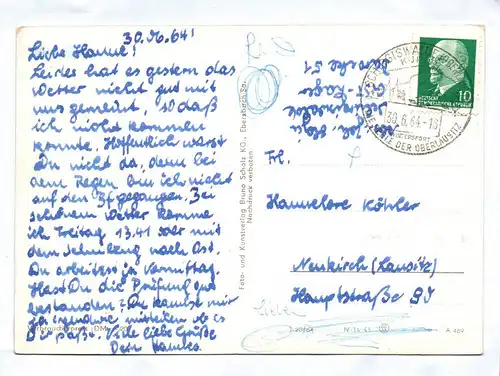 30.VI.64!
Liebe Hanne!
Leider hat es gestern das
Wetter nicht gut mit
uns gemeint, sodaß
ich nicht kommen
konnte. Hoffentlich warst
Du nicht da, denn bei
dem Regen bin ich nicht
auf den gegangen. Bei
schönem Wetter komme
ich Freitag 13.41 oder mit
dem Schulzug nach Ost.
Du arbeitest ja Vormittag.
Hast Du die Prüfung gut
bestanden? Du kannst mir
ja irgendwie mitteilen ob es
Dir paßt. Viele liebe Grüße
Dein
Foto- und Kunstverlag Bruno Scholz KG., Ebersbach Sa.
Nachdruck verboten
51
DEUTSCHE
DEMOKRATISCHE REPUBLIK
10
30.6.64-18
DER OBERLAUSITZ
Frl.
Hannelore Köhler
Neukirch (Lausitz)
Hauptstraße 91
A 469